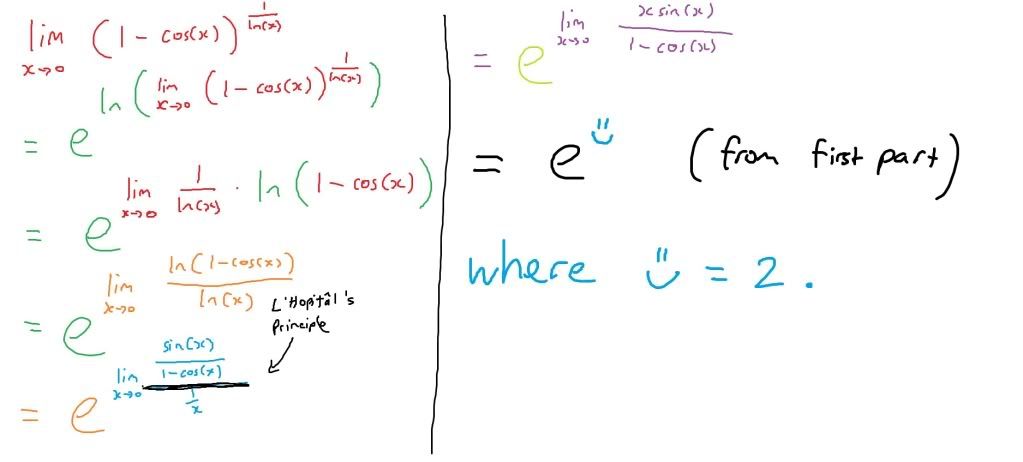 lim x→0 (1 - cos(x))^(1/ln(x))
= e^(ln(lim x→0 (1 - cos(x))^(1/ln(x))))
= e^(lim x→0 1/ln(x) · ln(1 - cos(x)))
= e^(lim x→0 ln(1-cos(x))/ln(x))
L'Hopitâl's
Principle
= e^(lim x→0 (sin(x)/(1-cos(x)))/(1/x))
= e^(lim x→0 x sin(x)/(1-cos(x)))
= e^(ü) (from first part)
where ü = 2.